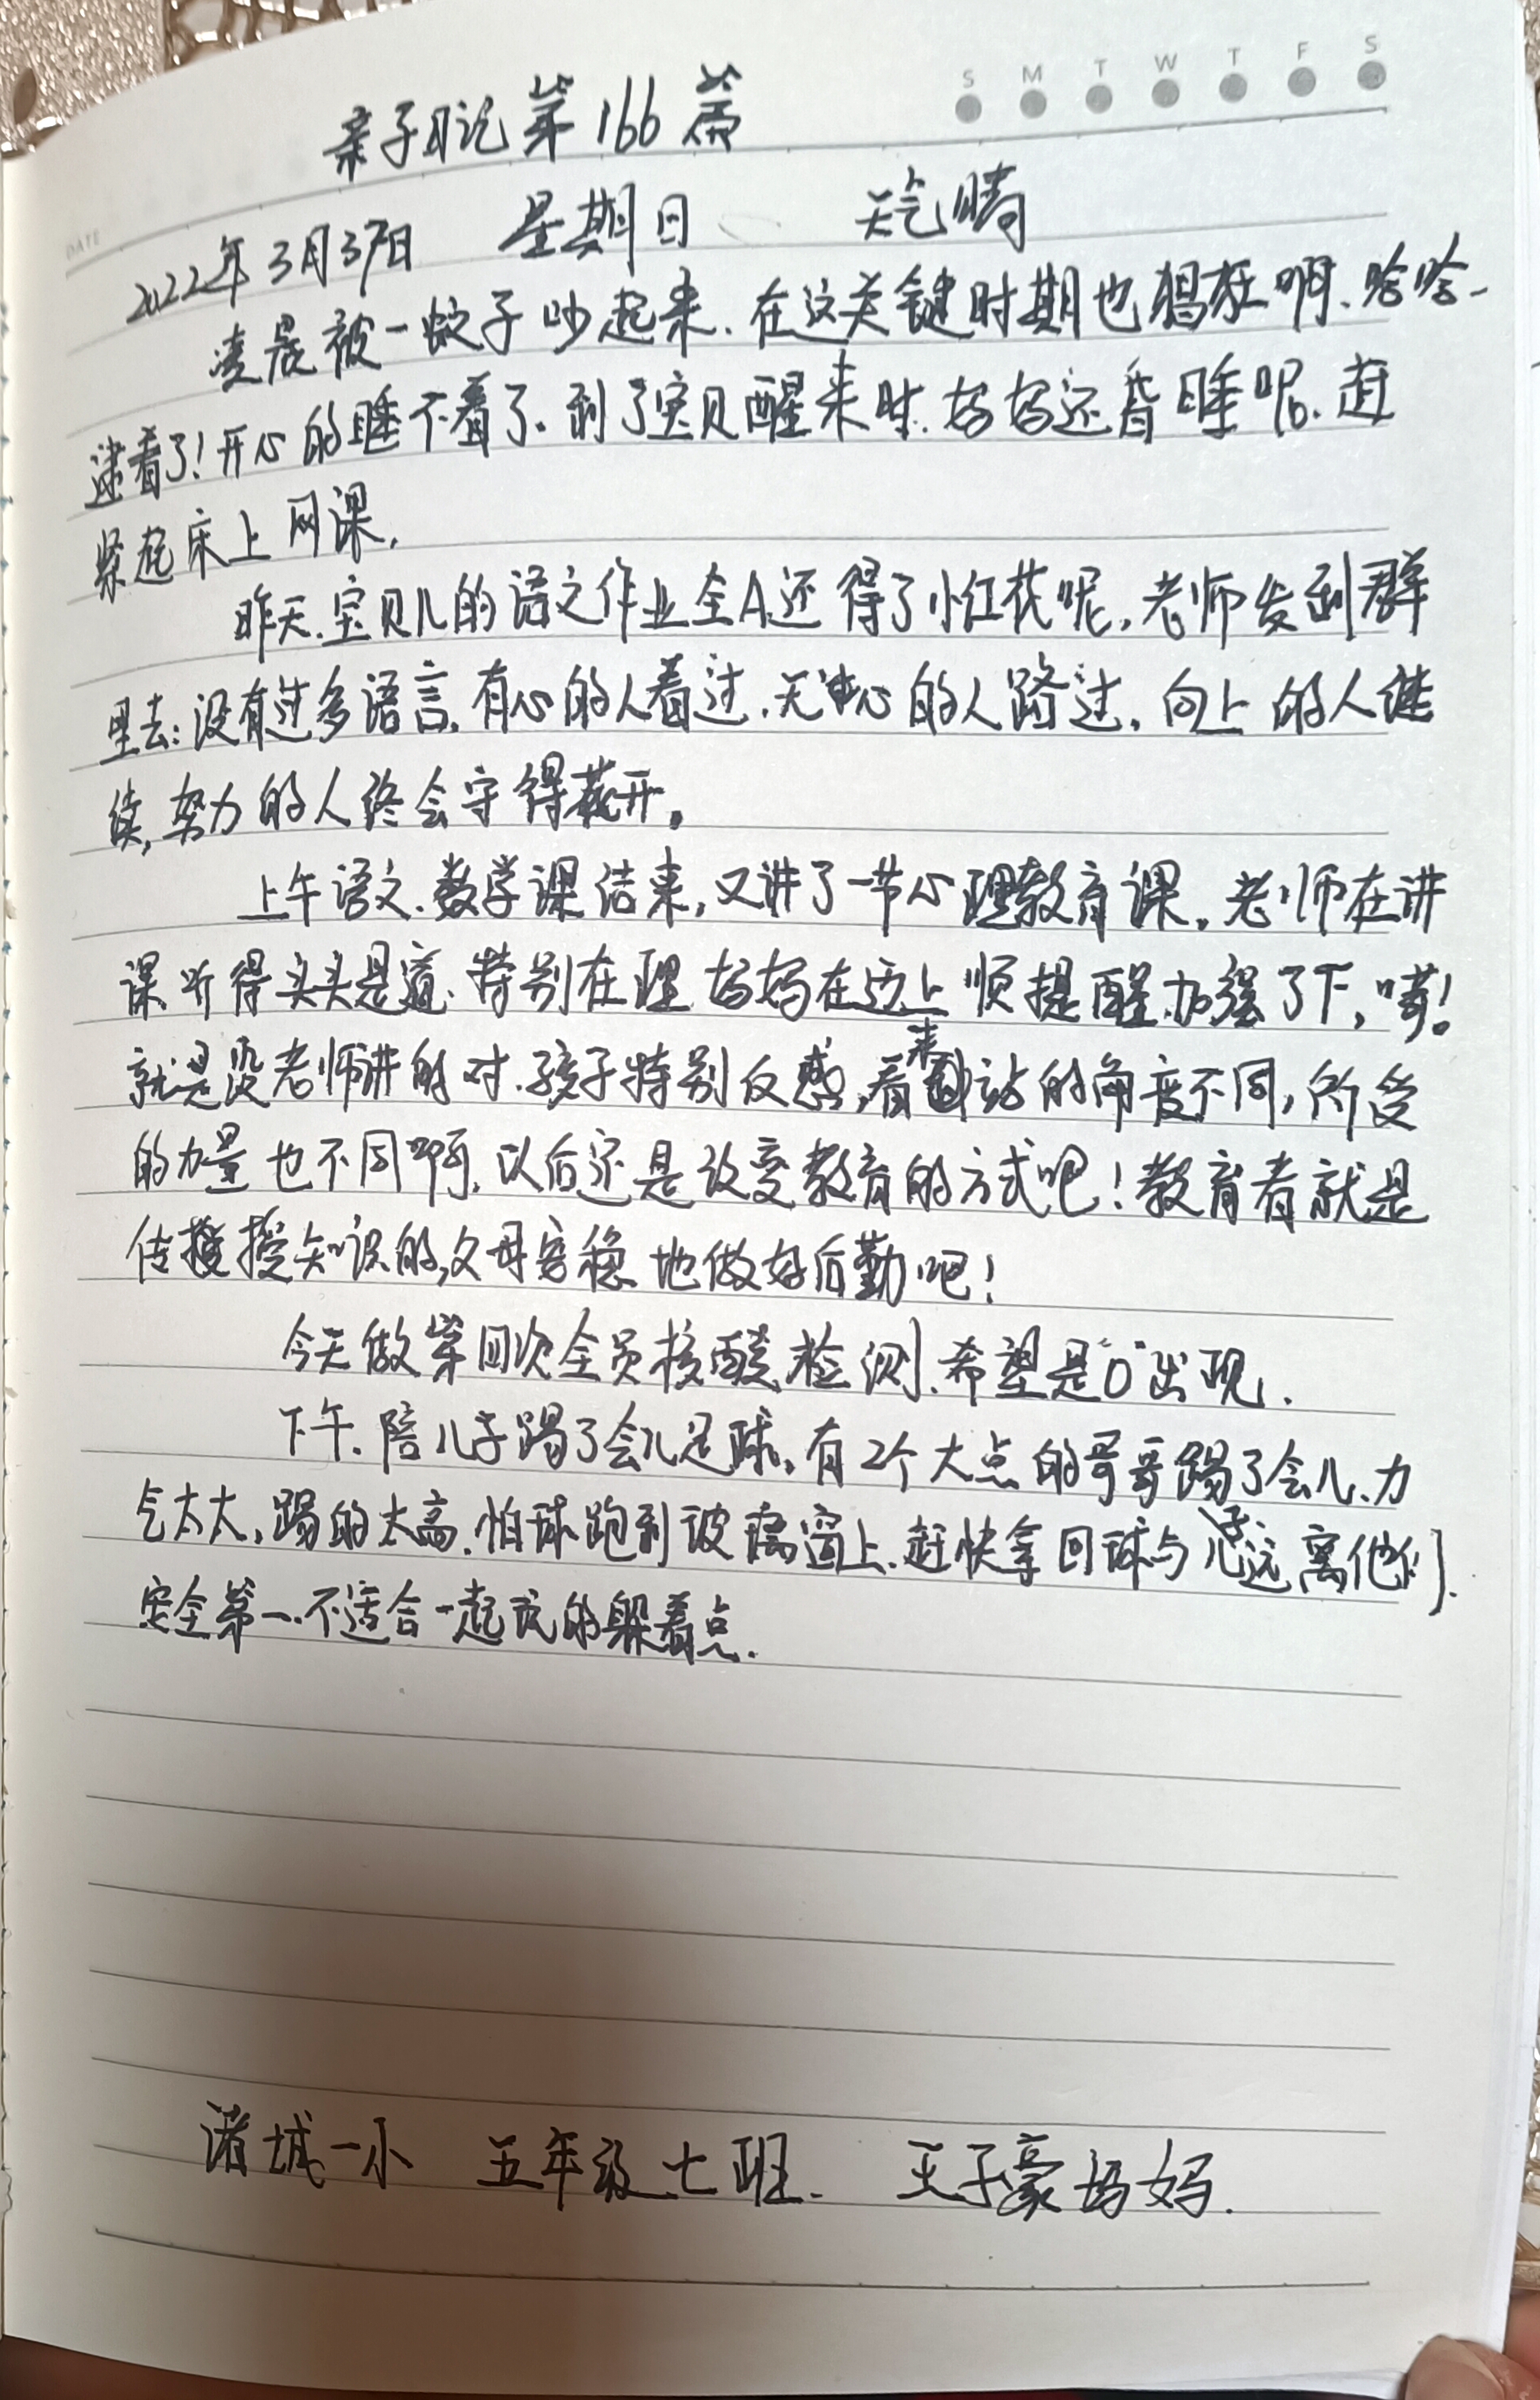 S M T W T F S
亲子日记第166篇
DATE
2022年3月37日 星期日 天气晴
凌晨被一蚊子吵起来、在这关键时期也猖狂啊、哈哈、
逮着了!开心的睡不着了、到了宝贝醒来时、妈妈还昏睡呢、赶
紧起床上网课,
昨天、宝贝儿的语文作业全A、还得了小红花呢,老师发到群
里去:没有过多语言,有心的人看过、无心的人路过,向上的人继
续,努力的人终会守得花开。
上午语文、数学课结束,又讲了一节心理教育课,老师在讲
课听得头头是道、特别在理、妈妈在边上顺提醒、加强了下,嗨!
就是没老师讲的对、孩子特别反感,看来站的角度不同,所受
的力量也不同啊,以后还是改变教育的方式吧!教育者就是
传授知识的,父母安稳地做好后勤吧!
今天做第四次全员核酸检测、希望是“0”出现.
下午、陪儿子踢了会儿足球,有2个大点的哥哥踢了会儿、力
气太大,踢的太高、怕球跑到玻璃窗上、赶快拿回球与儿子远离他们.
安全第一、不适合一起玩的躲着点.
诸城一小 五年级七班. 王子豪妈妈.